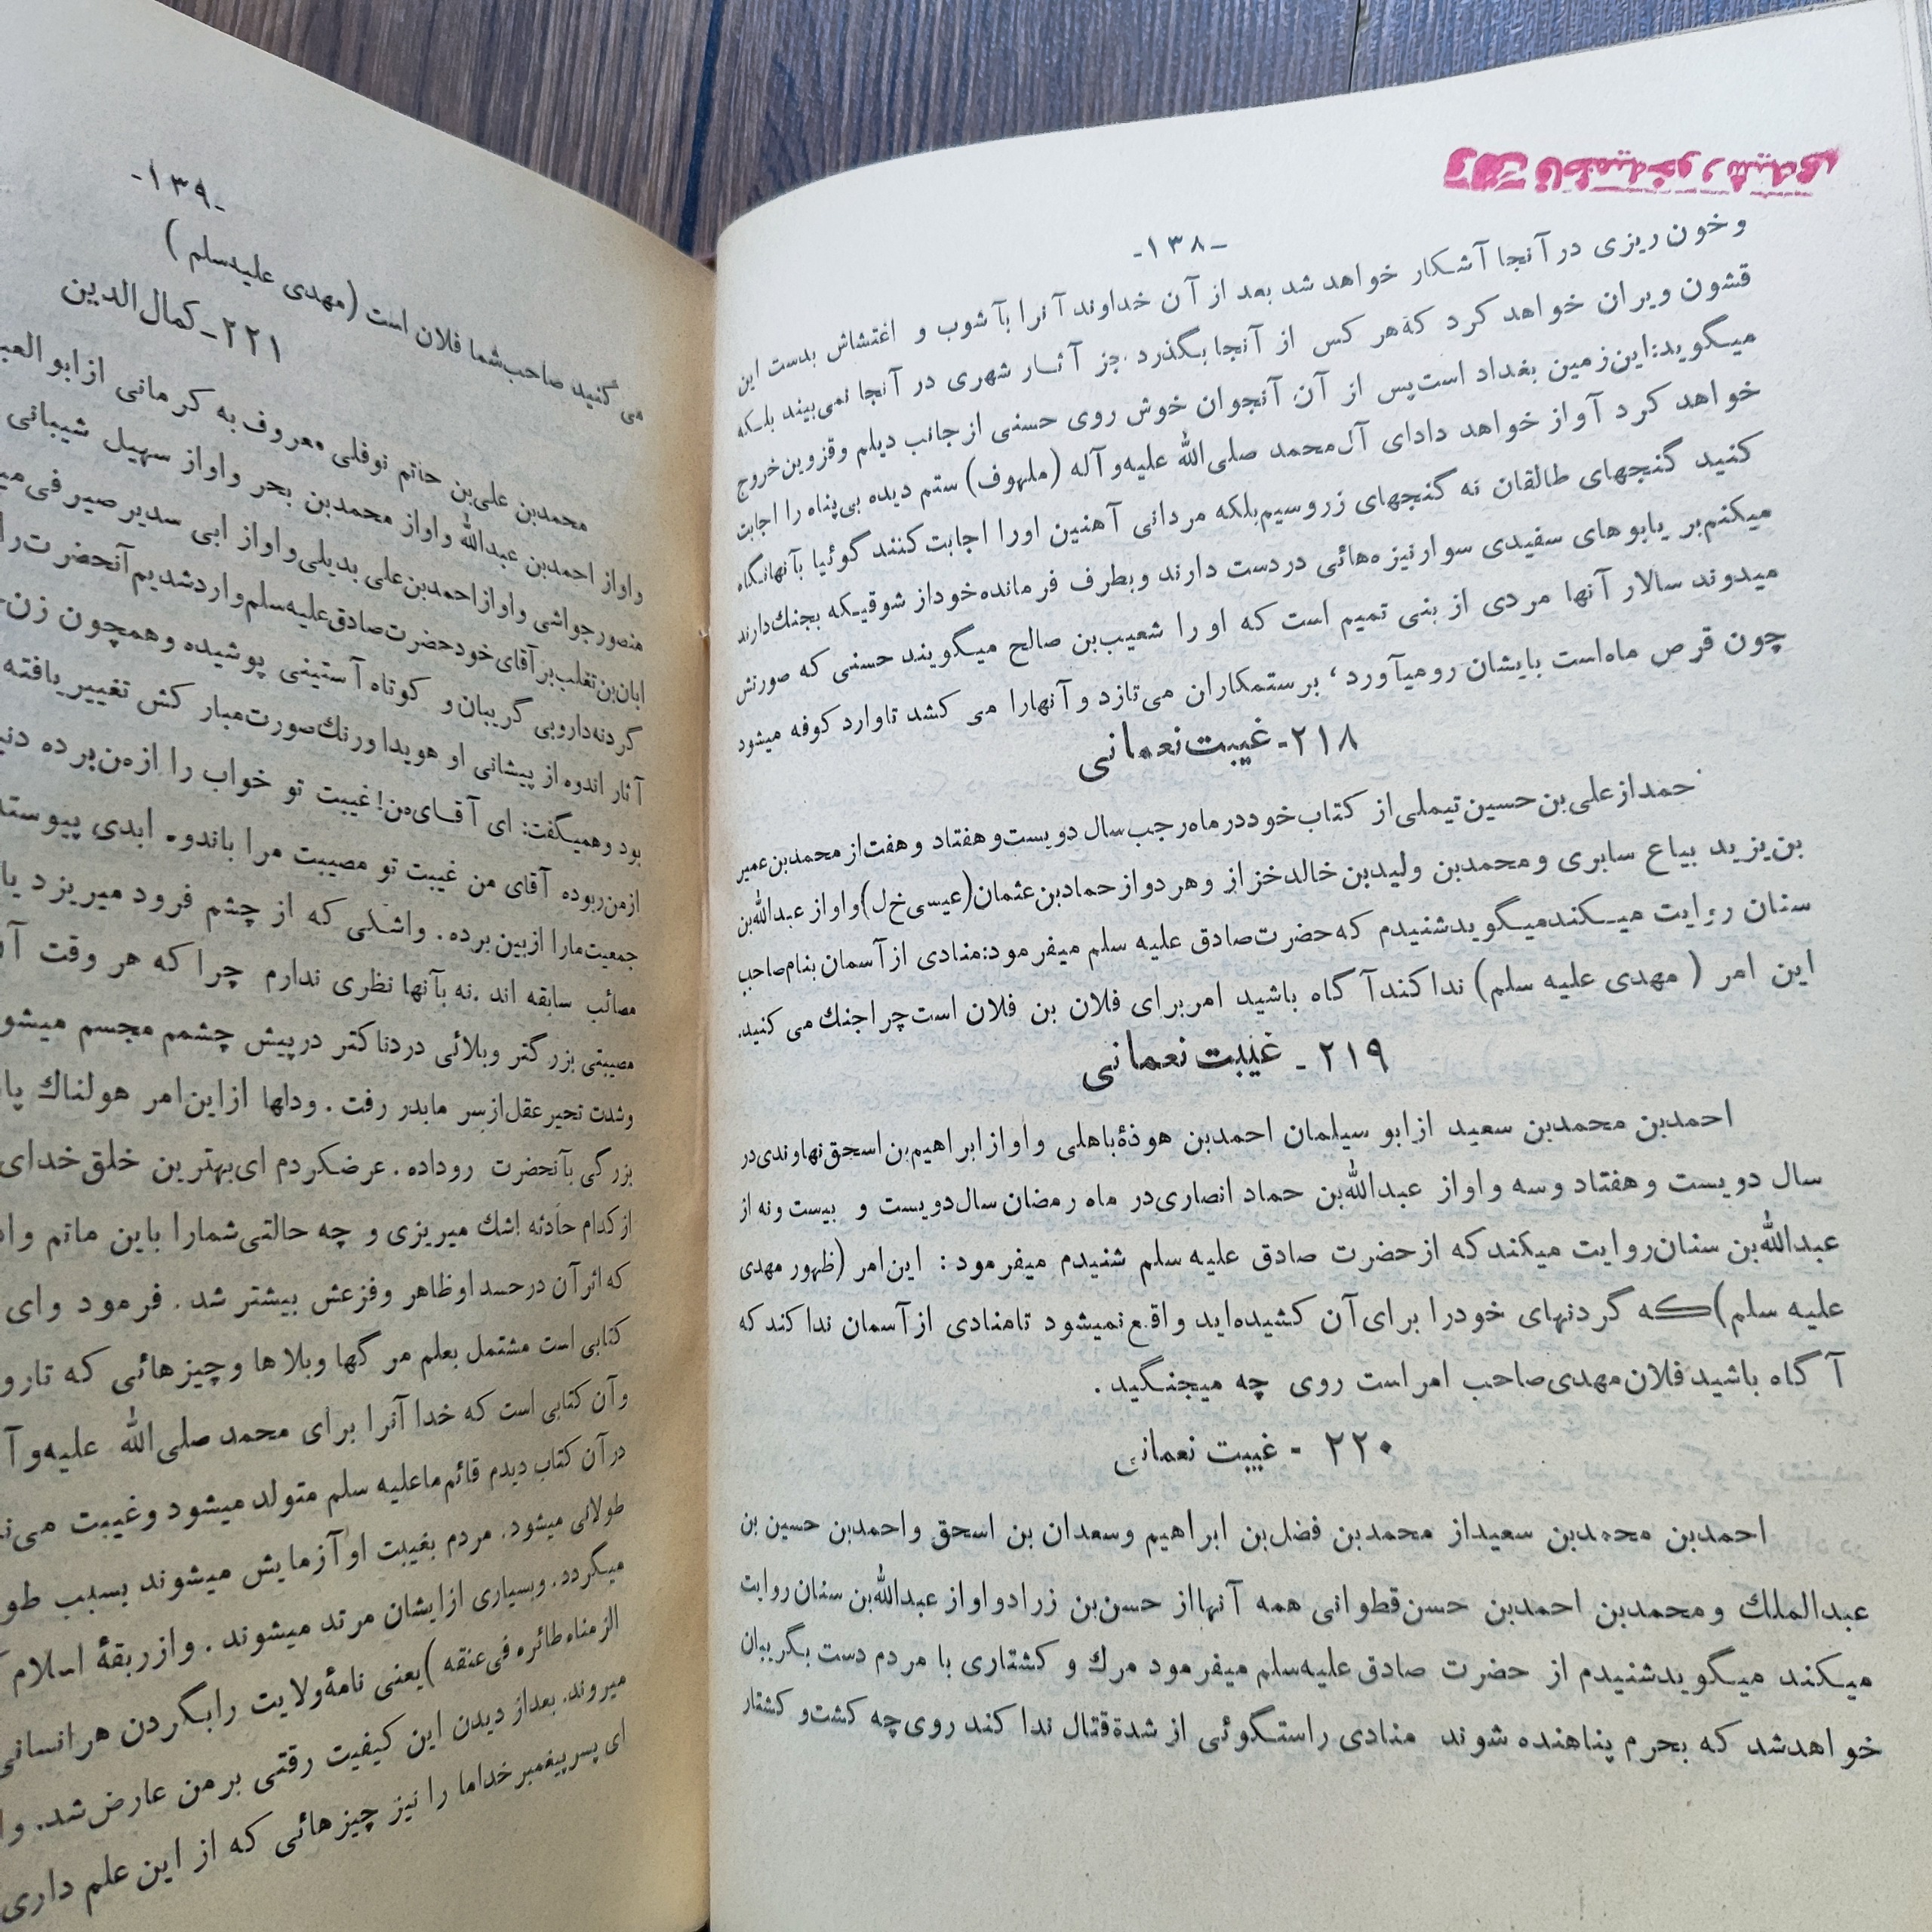 -۱۳۸-
و خون ریزی در آنجا آشکار خواهد شد بعد از آن خداوند آنرا بآشوب و اغتشاش بدست این
قشون ویران خواهد کرد که هر کس از آنجا بگذرد جز آثار شهری در آنجا نمی‌بیند بلکه
میگوید: این زمین بغداد است پس از آن آنجوان خوش روی حسنی از جانب دیلم و قزوین خروج
خواهد کرد آواز خواهد داد ای آل محمد صلی الله علیه و آله (ملهوف) ستم دیده بی‌پناه را اجابت
کنید گنجهای طالقان نه گنجهای زر و سیم بلکه مردانی آهنین او را اجابت کنند گوئیا بآنها نگاه
میکنم بر یابوهای سفیدی سوار نیزه‌هائی در دست دارند و بطرف فرمانده خود از شوقیکه بجنك دارند
میدوند سالار آنها مردی از بنی تمیم است که او را شعیب‌بن صالح میگویند حسنی که صورتش
چون قرص ماه است بایشان رومیآورد، بر ستمکاران می‌تازد و آنهارا می کشد تا وارد کوفه میشود
۲۱۸- غیبت نعمانی
حمد از علی بن حسین تیملی از کتاب خود در ماه رجب سال دویست و هفتاد و هفت از محمدبن عمیر
بن یزید بیاع سابری و محمدبن ولیدبن خالد خزاز و هر دو از حمادبن عثمان (عیسی خ ل) و او از عبدالله بن
سنان روایت میکند میگوید شنیدم که حضرت صادق علیه سلم میفرمود: منادی از آسمان بنام صاحب
این امر ( مهدی علیه سلم) ندا کند آگاه باشید امر برای فلان بن فلان است چرا جنك می کنید.
۲۱۹ - غیبت نعمانی
احمدبن محمدبن سعید از ابو سیلمان احمدبن هوذهٔ باهلی و او از ابراهیم بن اسحق نهاوندی در
سال دویست و هفتاد و سه و او از عبدالله بن حماد انصاری در ماه رمضان سال دویست و بیست و نه از
عبدالله بن سنان روایت میکند که از حضرت صادق علیه سلم شنیدم میفرمود: این امر (ظهور مهدی
علیه سلم) که گردنهای خودرا برای آن کشیده‌اید واقع نمیشود تا منادی از آسمان ندا کند که
آگاه باشید فلان مهدی صاحب امر است روی چه میجنگید.
۲۲۰ - غیبت نعمانی
احمدبن محمدبن سعید از محمدبن فضل بن ابراهیم و سعدان بن اسحق و احمدبن حسین بن
عبدالملك و محمدبن احمدبن حسن قطوانی همه آنها از حسن بن زراد و او از عبدالله بن سنان روایت
میکند میگوید شنیدم از حضرت صادق علیه سلم میفرمود مرك و کشتاری با مردم دست بگریبان
خواهد شد که بحرم پناهنده شوند منادی راستگوئی از شدة قتال ندا کند روی چه کشت و کشتار
-۱۳۹-
می کنید صاحب شما فلان است (مهدی علیه سلم)
۲۲۱ - کمال الدین
محمدبن علی بن حاتم نوفلی معروف به کرمانی از ابو
و او از احمدبن عبدالله و او از محمدبن بحر و او از سهیل شیبانی
منصور جواشی و او از احمدبن علی بدیلی و او از ابی سدیر صیرفی
ابان بن تغلب بر آقای خود حضرت صادق علیه سلم وارد شدیم آنحضرت را
گردنه دار و بی گریبان و کوتاه آستینی پوشیده و همچون زن
آثار اندوه از پیشانی او هویدا و رنك صورت مبار کش تغییر یافته
بود و همیگفت: ای آقای من! غیبت تو خواب را از من برده
از من ربوده آقای من غیبت تو مصیبت مرا باندوه ابدی پیوسته
جمعیت مارا از بین برده. و اشکی که از چشم فرود میریزد
مصائب سابقه اند. نه بآنها نظری ندارم چرا که هر وقت
مصیبتی بزرگتر و بلائی دردناکتر در پیش چشمم مجسم میشو
و شدت تحیر عقل از سر ما بدر رفت. و دلها از این امر هولناك
بزرگی بآنحضرت روداده. عرضکردم ای بهترین خلق خدای
از کدام حادثه اشك میریزی و چه حالتی شمارا باین ماتم
که اثر آن در جسد او ظاهر و فزعش بیشتر شد. فرمود وای
کتابی است مشتمل بعلم مرگها و بلاها و چیزهائی که تا
و آن کتابی است که خدا آنرا برای محمد صلی الله علیه و
در آن کتاب دیدم قائم ما علیه سلم متولد میشود و غیبت
طولانی میشود. مردم بغیبت او آزمایش میشوند بسبب
میگردد. و بسیاری از ایشان مرتد میشوند. و از ربقهٔ اسلام
الزمناه طائره فی عنقه) یعنی نامهٔ ولایت را بگردن هر انسانی
میروند. بعد از دیدن این کیفیت رقتی بر من عارض شد.
ای پسر پیغمبر خدا ما را نیز چیزهائی که از این علم داری